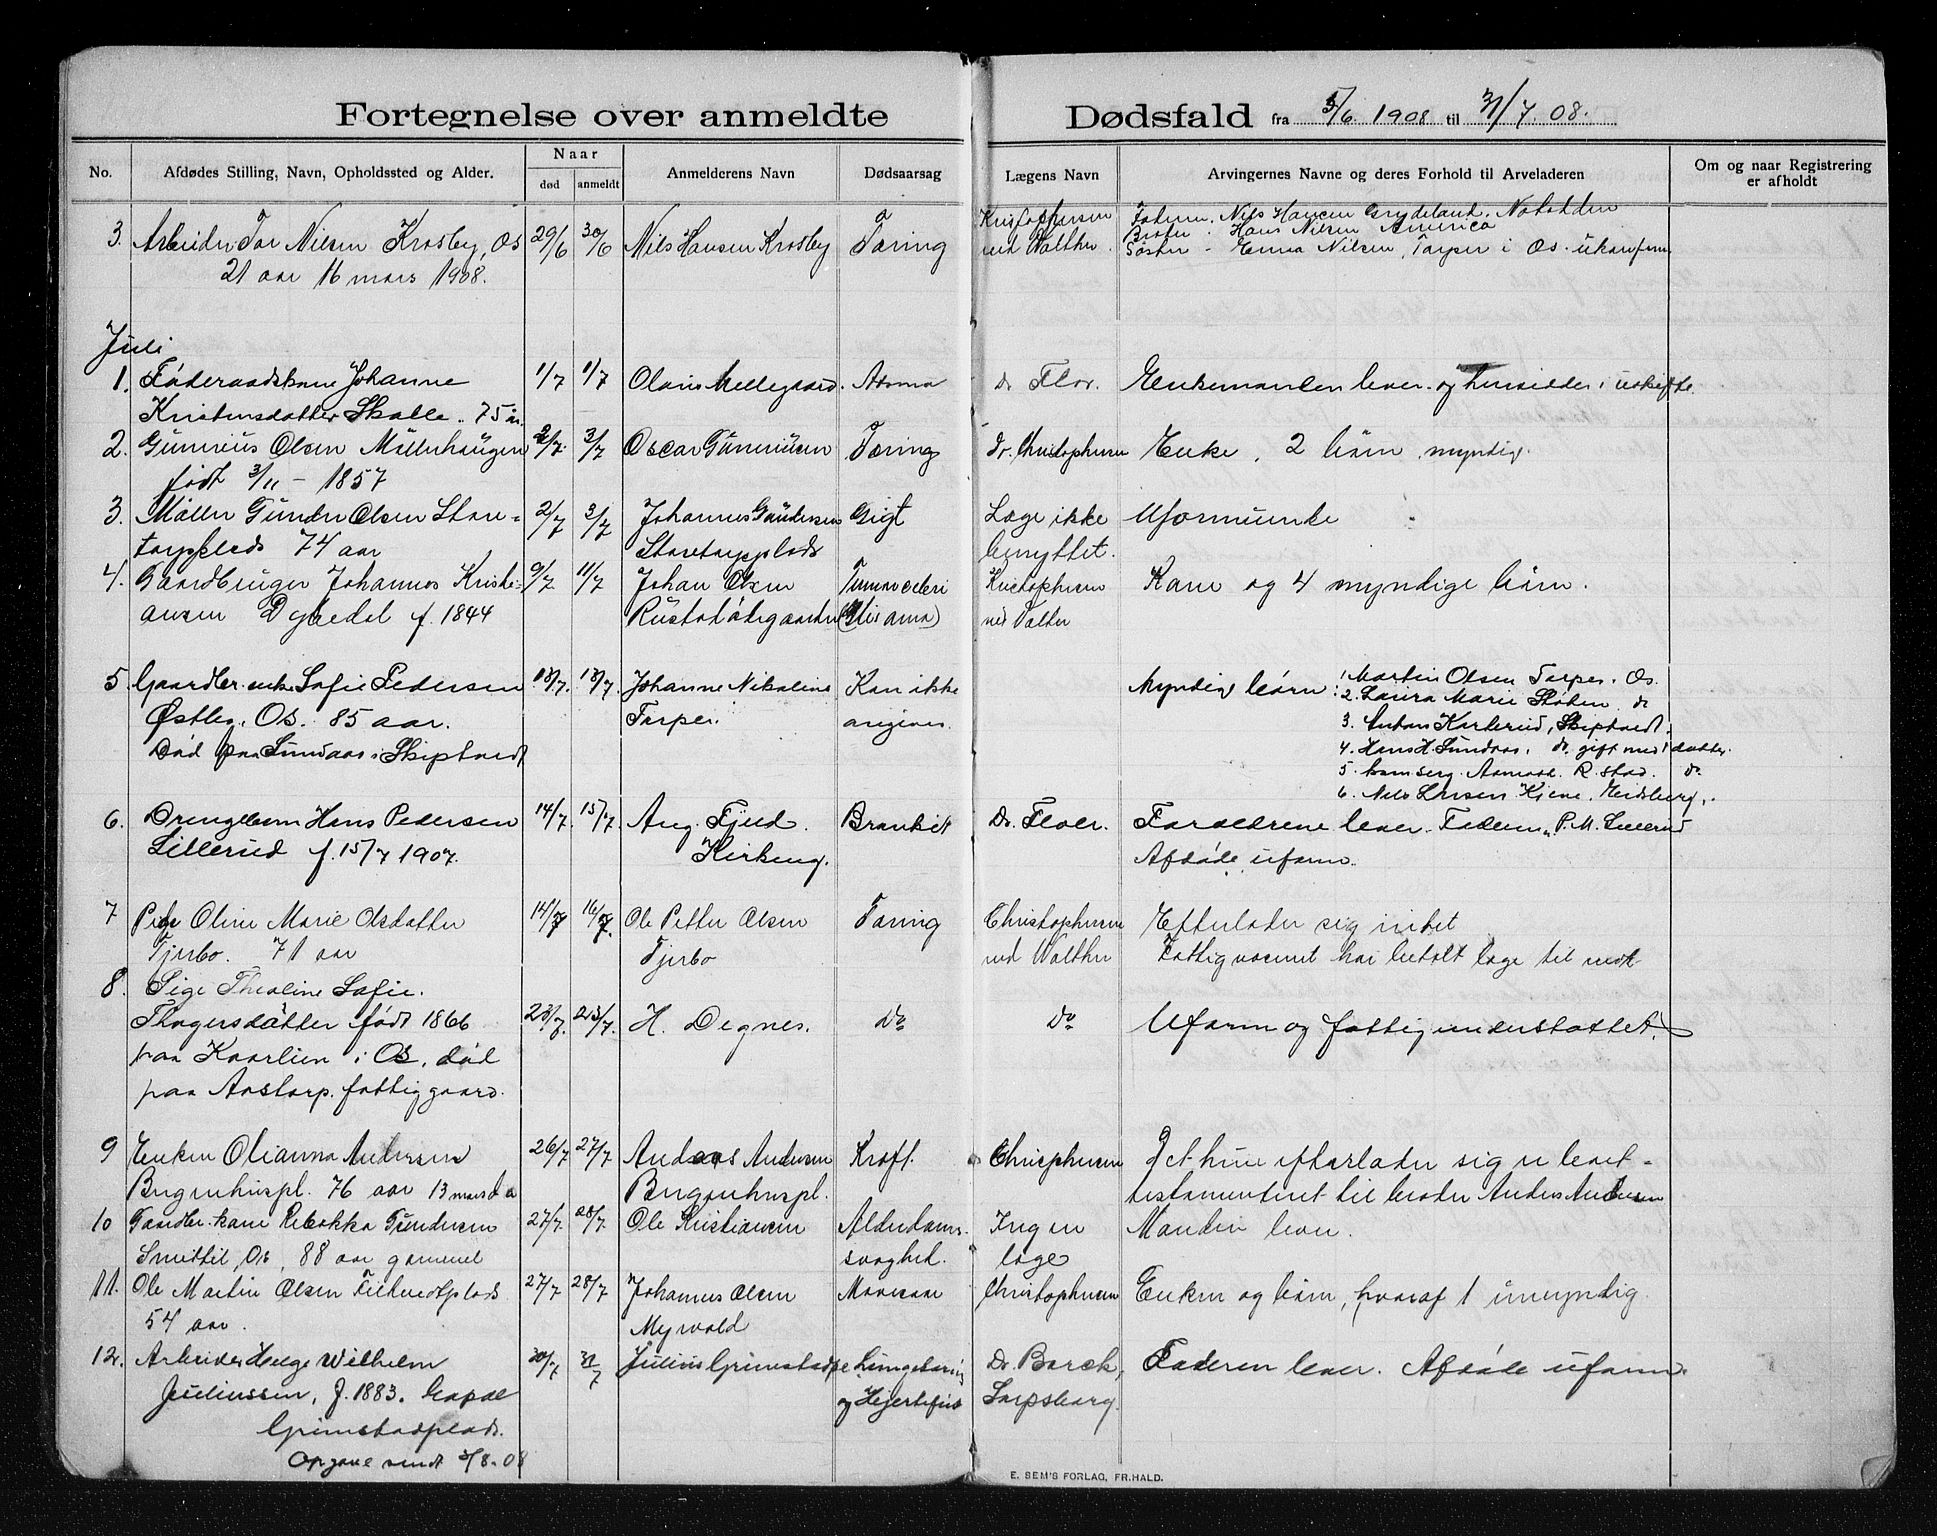 Fortegnelse over anmeldte Dødsfald fra 5/6 1908 til 31/7 08.
No.
Afdødes Stilling, Navn, Opholdssted og Alder.
Naar
død
anmeldt
Anmelderens Navn
Dødsaarsag
Lægens Navn
Arvingernes Navne og deres Forhold til Arveladeren
Om og naar Registrering
er afholdt
3. Arbeider Tor Nilsen Krosby, Os 29/6 30/6 Nils Hansen Krosby Tæring
21 aar 16 mars 1908.
Kristophersen
ved Walther
Faderen. Nils Hansen Grydeland. Notodden
Broder. Hans Nilsen America
Søster - Emma Nilsen, Torper i Os - ukonfirm
Juli
1. Føderaadskone Johanne 1/7 1/7 Olaus Mellegaard. Astma dr Flor. Enkemanden lever og hensidder i uskifte.
Kristensdatter Skolle. 75 år.
2. Gunerius Olsen Møllerhaugen 2/7. 3/7 Oscar Guneriusen Tæring Dr. Christophersen Enke, 2 børn myndig.
født 3/11 - 1857
3. Møller Gunder Olsen Store- 2/7 3/7 Johannes Gundersen Gigt Læge ikke Uformuende
torpplads 74 aar Storetorpplads benyttet.
4. Gaardbruger Johannes Kristi- 9/7 11/7 Johan Olsen Kristophersen Kone og 4 myndige børn.
ansen Dyredal f. 1844 Rustadødegaarden ved Valter
5. Gaardbr. enke Sofie Pedersen 13/7. 18/7. Johanne Nikoline Kan ikke
Østby, Os. 85 aar. Torper. angives.
Død paa Sundaas i Skiptvedt
Myndig børn: 1. Martin Olsen Torper. Os.
2. Laura Marie Støten do
3. Anton Karlerud, Skiptvedt,
4. Hans H. Sundaas, do gift med 1 datter.
5. R.stad. do
6. Nils Larsen Kjene, Eidsberg.
6. Drengebarn Hans Pedersen 14/7. 15/7. Aug. Fjeld. Bronkit Dr. Floer. Forældrene lever. Faderen P. M. Lillerud
Lillerud f. 15/7 1907. Kirkeng. Afdøde uform.
7 Pige Oline Marie Olsdatter 14/7 16/7. Ole Petter Olsen Tæring Christophersen Efterlader sig intet
Tjerbo. 71 aar Tjerbo ved Walther Fattigvæsenet har betalt læge til
8. Pige Theoline Sofie.
Thogersdatter født 1866 23/7. 23/7. H. Degnes. do do Uform og fattigunderstøttet.
paa Kaarlien i Os, død
paa Aastorp fattiggaard.
9 Enken Olianna Andersen 26/7 27/7 Anders Andersen Kræft. Christphersen Det hun efterlader sig er
Brynhuspl. 76 aar 13 mars d a Brynhuspl. testamenteret til broder Anders Andersen
10 Gaardbr. kone Rebekka Gundersen 27/7 28/7 Ole Kristiansen Alderdoms- Ingen Manden lever.
Smettil, Os, 88 aar gammel svaghed. læge
11. Ole Martin Olsen 27/7 28/7 Johannes Olsen Christophersen Enken og børn, hvoraf 1 umyndig.
54 aar. Myrvold
12. Arbeider Helge Wilhelm 30/7 31/7 Julius Grimstadpl. Lungebetæn. Dr. Borch, Faderen lever. Afdøde uform.
Juliussen, f. 1883. Grimstadplads. og Hjertefeil Sarpsborg.
Opgave sendt 3/8-08
E. SEM'S FORLAG, FR.HALD.